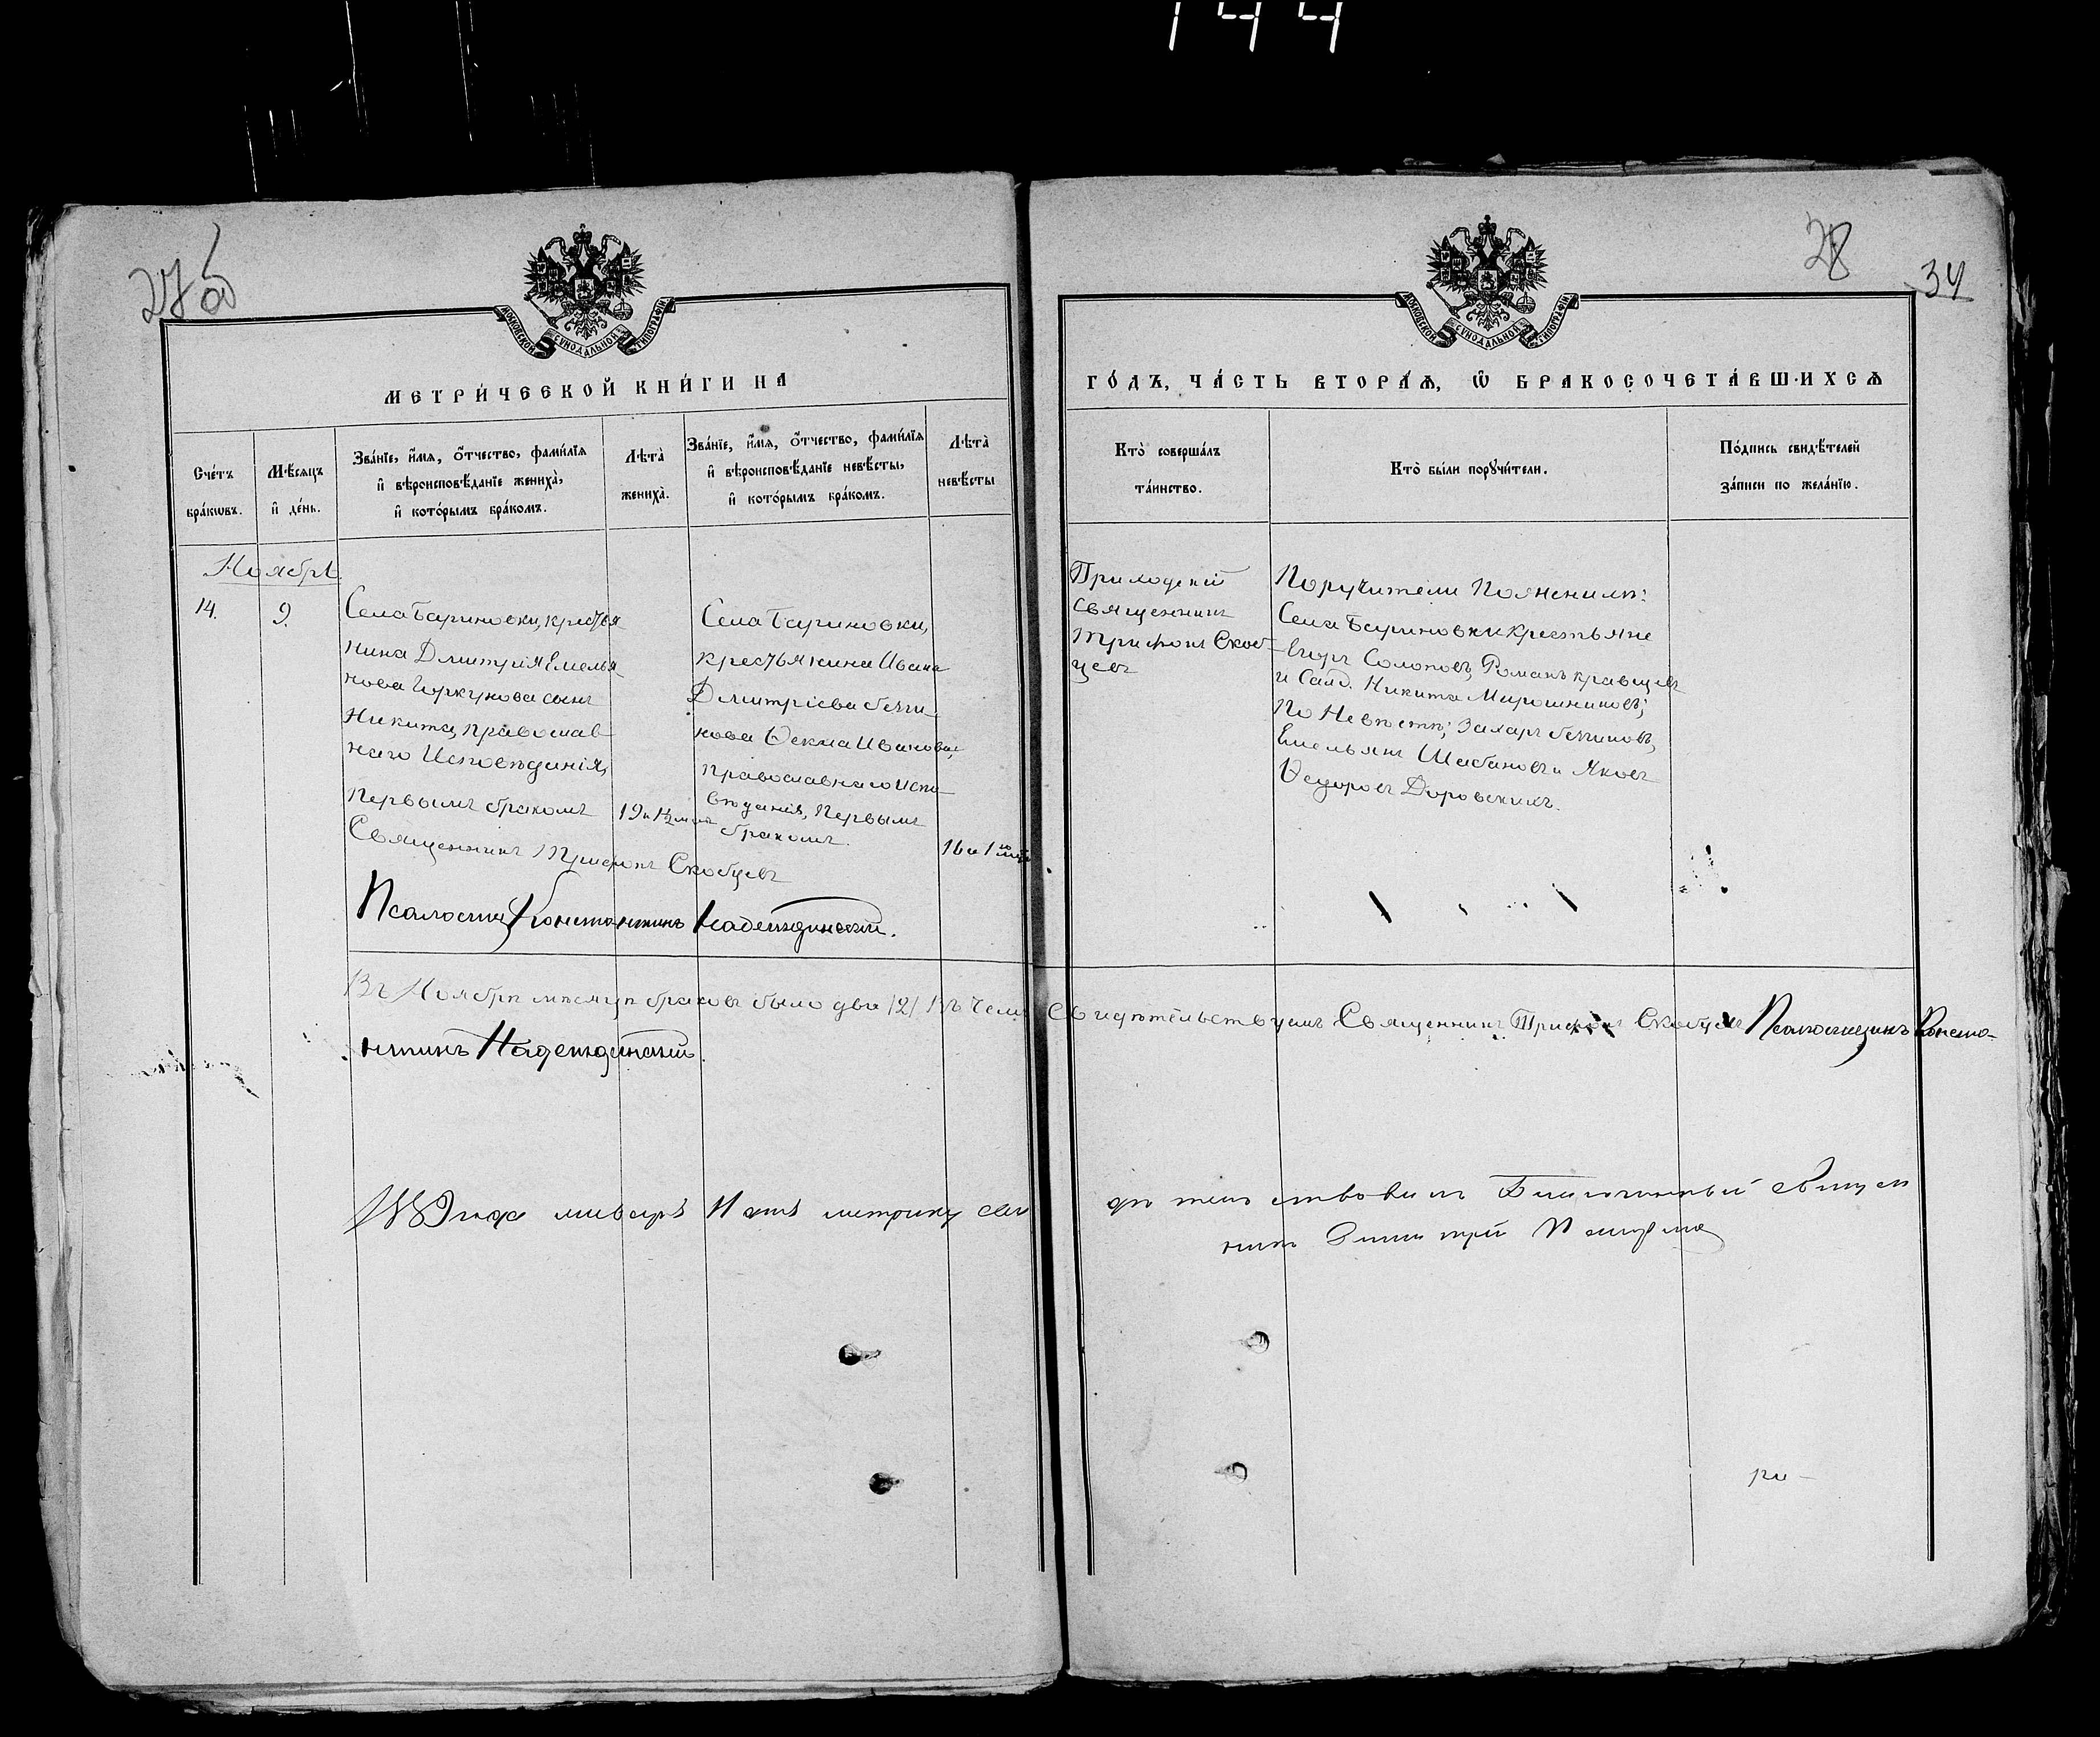 144
28
34
МОСКОВСКОЙ СѴНОДАЛЬНОЙ ТИПОГРАФІИ
МОСКОВСКОЙ СѴНОДАЛЬНОЙ ТИПОГРАФІИ
МЕТРИ́ЧЕСКОЙ КНИ́ГИ НА
ГО́ДЪ, ЧА́СТЬ ВТОРА́Ѧ, Ѡ҆ БРАКОСОЧЕТА́ВШИХСѦ
Сче́тъ бра́кѡвъ.
Мѣ́сяцъ и҆ де́нь.
Зва́нїе, и҆́мѧ, ѻ҆́тчество, фами́лїѧ и҆ вѣроисповѣ́данїе жениха̀, и҆ кото́рымъ бра́комъ.
Лѣта̀ жениха̀.
Зва́нїе, и҆́мѧ, ѻ҆́тчество, фами́лїѧ и҆ вѣроисповѣ́данїе невѣ́сты, и҆ кото́рымъ бра́комъ.
Лѣта̀ невѣ́сты
Кто̀ соверша́лъ та́инство.
Кто̀ бы́ли порꙋчи́тели.
По́дпись свидѣ́телей за́писи по жела́нїю.
Ноябрь
14.
9.
Села Бариновки, крестья
нина Дмитрія Емелья
нова сынъ
Никита, православ
наго Исповѣданія,
первымъ бракомъ
19 и
Села Бариновки,
крестьянина Ивана
Дмитріева
нова Ѳекла Иванова,
православнаго испо
вѣданія, первымъ
бракомъ.
16 и 1
Приходскій
священникъ
Трифонъ Скоб-
цевъ
Поручители По женихѣ:
Села Бариновки крестьяне
Егоръ Солоповъ, Романъ Кравцевъ
и Солд. Никита Мирошниковъ;
По Невѣстѣ; Захаръ
Емельянъ Шабановъ и Яковъ
Ѳедоровъ Доровскихъ.
Священникъ Трифонъ Скобцевъ
Псаломщ Константинъ Надеждинскій.
Въ Ноябрѣ мѣсяцѣ браковъ было два /2/ Въ чемъ Свидѣтельствуемъ Священникъ Трифонъ Скобцевъ Псаломщикъ Конста-
нтинъ Надеждинскій.
метрику сви
дѣтельствовалъ Благочинный священ
никъ Димитрій